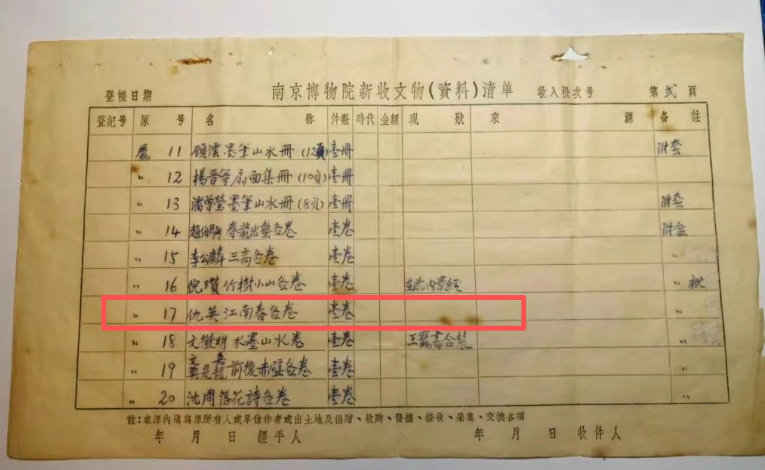 南京博物院新收文物(資料)清单
登帳日期 收入批次号 第 弍 頁
登記号 原号 名称 件数 時代 金額 現狀 來源 备註
龐 11 顧澐墨筆山水冊(12頁) 壹冊 附套
〃 12 楊晋等扇面集冊(10頁) 壹冊
〃 13 潘曾瑩墨筆山水冊(8頁) 壹冊 附套
〃 14 趙伯駒春龍出蟄 卷 壹卷 附
〃 15 李公麟三高 卷 〃
〃 16 倪瓚竹樹小山 卷 壹卷 〃
〃 17 仇英江南春 卷 壹卷 〃
〃 18 文徵明水墨山水卷 壹卷 王寵書合裝 〃
〃 19 文嘉 前後赤壁 卷 壹卷 〃
〃 20 沈周落花詩 卷 壹卷 〃
註:來源內填寫原所有人或單位作者或出土地及捐贈、收購、發掘、接收、采集、交換各項
年 月 日 經手人 年 月 日 收件人